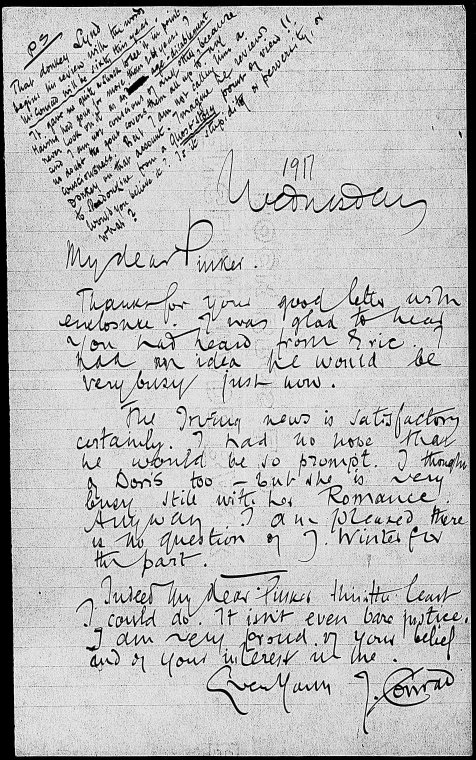 PS
That donkey Lynd
begins his review with the words
Mr Conrad will be sixty this year.
It gave me quite a shock to see it in print.
Having had gout for more than
never look on it as an age-disablement
and I am not conscious of any other because
no doubt the gout covers them all up to my
consciousness. But I am not calling him a
Donkey on that account. Imagine he reviews
the Shadow line from a Ghost-story point of view!!
Would you believe it? Is it stupidity or perversity, or
what?
1917
Wednesday
My dear Pinker.
Thanks for your good letter with
enclosure. I was glad to hear
you had heard from Eric. I
had an idea he would be
very busy just now.
The Irving news is satisfactory
certainly. I had no hope that
he would be so prompt. I thought
a Doris too – but she is very
busy still with her Romance.
Anyway I am pleased there
is no question of J. Winter for
the part.
Indeed my dear Pinker this the least
I could do. It isn't even bare justice.
I am very proud of your belief
and of your interest in me.
Ever Yours J. Conrad